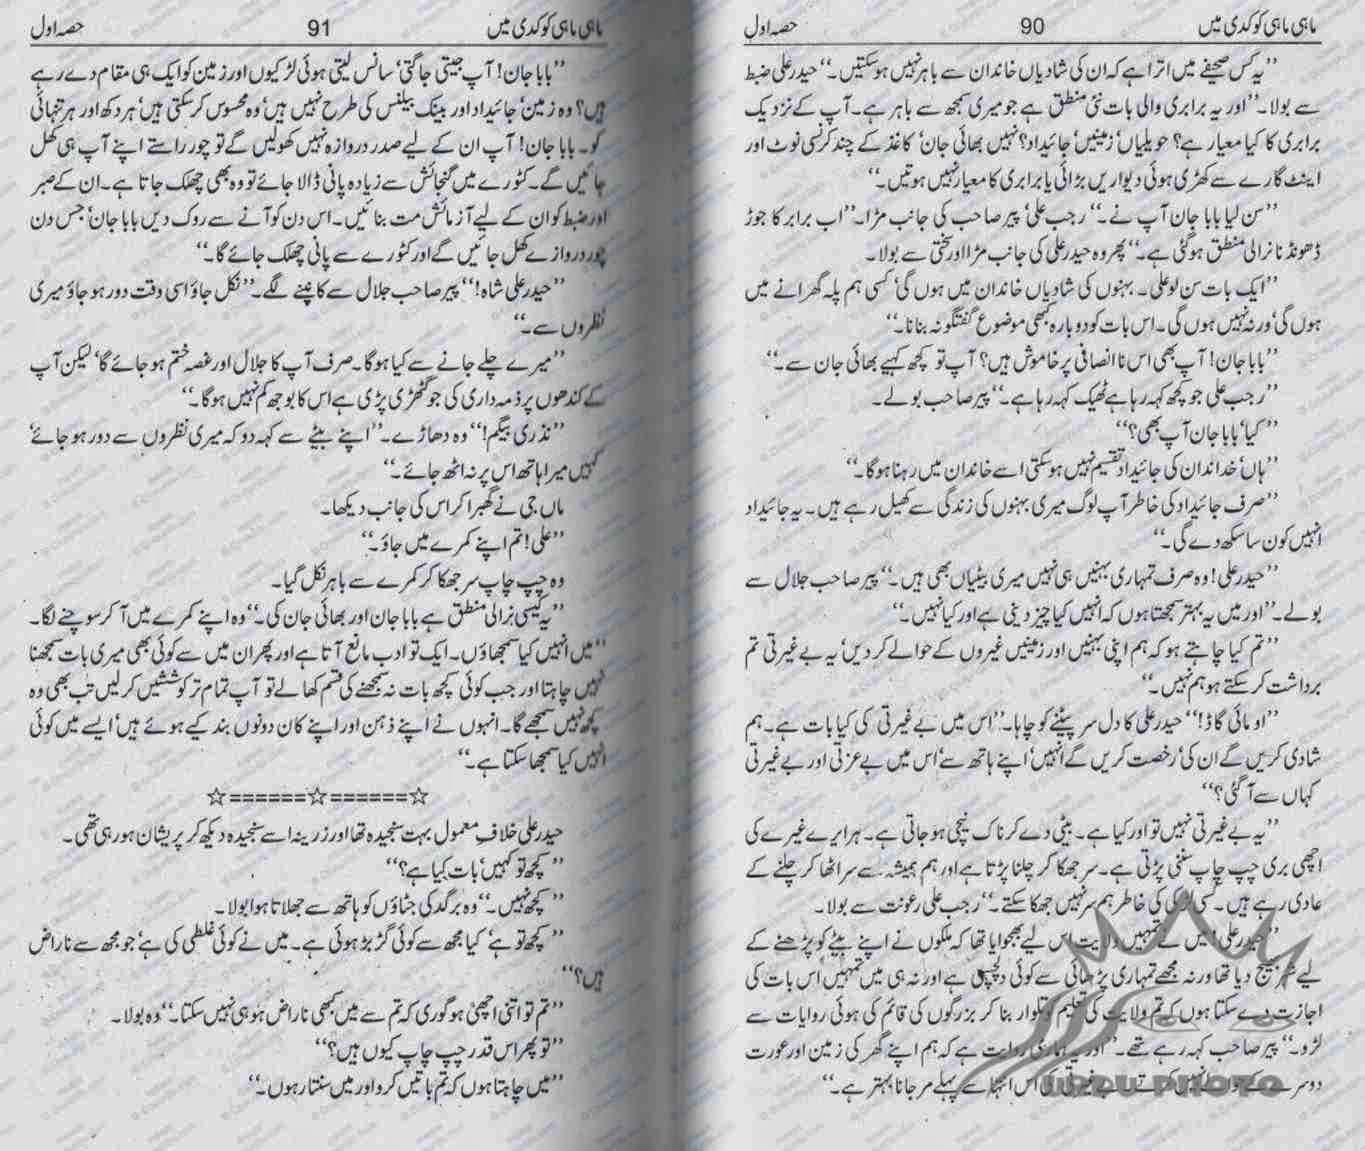 ماہی ماہی کوکدی میں 90 حصہ اول
”یہ کس صحیفے میں اترا ہے کہ ان کی شادیاں خاندان سے باہر نہیں ہو سکتیں۔“ حیدر علی ضبط
سے بولا۔ ”اور یہ برابری والی بات نئی منطق ہے جو میری سمجھ سے باہر ہے۔ آپ کے نزدیک
برابری کا کیا معیار ہے؟ حویلیاں‘ زمینیں‘ جائیداد؟ نہیں بھائی جان‘ کاغذ کے چند کرنسی نوٹ اور
اینٹ گارے سے کھڑی ہوئی دیواریں بڑائی یا برابری کا معیار نہیں ہوتیں۔“
”سن لیا بابا جان آپ نے۔“ رجب علی‘ پیر صاحب کی جانب مڑا۔ ”اب برابر کا جوڑ
ڈھونڈنا نرالی منطق ہو گئی ہے۔“ پھر وہ حیدر علی کی جانب مڑا اور سختی سے بولا۔
”ایک بات سن لو علی۔ بہنوں کی شادیاں خاندان میں ہوں گی‘ کسی ہم پلہ گھرانے میں
ہوں گی‘ ورنہ نہیں ہوں گی۔ اس بات کو دوبارہ کبھی موضوع گفتگو نہ بنانا۔“
”بابا جان! آپ بھی اس نا انصافی پر خاموش ہیں؟ آپ تو کچھ کہیے بھائی جان سے۔“
”رجب علی جو کچھ کہہ رہا ہے ٹھیک کہہ رہا ہے۔“ پیر صاحب بولے۔
”کیا‘ بابا جان آپ بھی؟“
”ہاں‘ خاندان کی جائیداد تقسیم نہیں ہو سکتی اسے خاندان میں رہنا ہوگا۔“
”صرف جائیداد کی خاطر آپ لوگ میری بہنوں کی زندگی سے کھیل رہے ہیں۔ یہ جائیداد
انہیں کون سا سکھ دے گی۔“
”حیدر علی! وہ صرف تمہاری بہنیں ہی نہیں میری بیٹیاں بھی ہیں۔“ پیر صاحب جلال سے
بولے۔ ”اور میں یہ بہتر سمجھتا ہوں کہ انہیں کیا چیز دینی ہے اور کیا نہیں۔“
”تم کیا چاہتے ہو کہ ہم اپنی بہنیں اور زمینیں غیروں کے حوالے کر دیں‘ یہ بے غیرتی تم
برداشت کر سکتے ہو ہم نہیں۔“
”او مائی گاڈ!“ حیدر علی کا دل سر پیٹنے کو چاہا۔ ”اس میں بے غیرتی کی کیا بات ہے۔ ہم
شادی کریں گے ان کی‘ رخصت کریں گے انہیں‘ اپنے ہاتھ سے‘ اس میں بے عزتی اور بے غیرتی
کہاں سے آ گئی؟“
”یہ بے غیرتی نہیں تو اور کیا ہے۔ بیٹی دے کر ناک نیچی ہو جاتی ہے۔ ہر ایرے غیرے کی
اچھی بری چپ چاپ سننی پڑتی ہے۔ سر جھکا کر چلنا پڑتا ہے اور ہم ہمیشہ سے سر اٹھا کر چلنے کے
عادی رہے ہیں۔ کسی لڑکی کی خاطر ہم سر نہیں جھکا سکتے۔“ رجب علی رعونت سے بولا۔
”حیدر علی! میں نے تمہیں ولایت اس لیے بھجوایا تھا کہ ملکوں نے اپنے بیٹے کو پڑھنے کے
لیے بھیج دیا تھا ورنہ مجھے تمہاری پڑھائی سے کوئی دلچسپی ہے اور نہ ہی میں تمہیں اس بات کی
اجازت دے سکتا ہوں کہ تم ولایت کی تعلیم کو تلوار بنا کر بزرگوں کی قائم کی ہوئی روایات سے
لڑو۔“ پیر صاحب کہہ رہے تھے۔ ”اور یہ ہماری روایت ہے کہ ہم اپنے گھر کی زمین اور عورت
دوسرے کے حوالے نہیں کرتے بے غیرتی کی اس انتہا سے پہلے مر جانا بہتر ہے۔“
URDU PHOTO
ماہی ماہی کوکدی میں 91 حصہ اول
”بابا جان! آپ جیتی جاگتی‘ سانس لیتی ہوئی لڑکیوں اور زمین کو ایک ہی مقام دے رہے
ہیں؟ وہ زمین‘ جائیداد اور بینک بیلنس کی طرح نہیں ہیں‘ وہ محسوس کر سکتی ہیں‘ ہر دکھ اور ہر تنہائی
کو۔ بابا جان! آپ ان کے لیے صدر دروازہ نہیں کھولیں گے تو چور راستے اپنے آپ ہی کھل
جائیں گے۔ کٹورے میں گنجائش سے زیادہ پانی ڈالا جائے تو وہ بھی چھلک جاتا ہے۔ ان کے صبر
اور ضبط کو ان کے لیے آزمائش مت بنائیں۔ اس دن کو آنے سے روک دیں بابا جان‘ جس دن
چور دروازے کھل جائیں گے اور کٹورے سے پانی چھلک جائے گا۔“
”حیدر علی شاہ!“ پیر صاحب جلال سے کانپنے لگے۔ ”نکل جاؤ اسی وقت دور ہو جاؤ میری
نظروں سے۔“
”میرے چلے جانے سے کیا ہوگا۔ صرف آپ کا جلال اور غصہ ختم ہو جائے گا‘ لیکن آپ
کے کندھوں پر ذمہ داری کی جو گٹھڑی پڑی ہے اس کا بوجھ کم نہیں ہوگا۔“
”نذری بیگم!“ وہ دھاڑے۔ ”اپنے بیٹے سے کہہ دو کہ میری نظروں سے دور ہو جائے‘
کہیں میرا ہاتھ اس پر نہ اٹھ جائے۔“
ماں جی نے گھبرا کر اس کی جانب دیکھا۔
”علی! تم اپنے کمرے میں جاؤ۔“
وہ چپ چاپ سر جھکا کر کمرے سے باہر نکل گیا۔
”یہ کیسی نرالی منطق ہے بابا جان اور بھائی جان کی۔“ وہ اپنے کمرے میں آ کر سوچنے لگا۔
”میں انہیں کیا سمجھاؤں۔ ایک تو ادب مانع آتا ہے اور پھر ان میں سے کوئی بھی میری بات سمجھنا
نہیں چاہتا اور جب کوئی کچھ بات نہ سمجھنے کی قسم کھا لے تو آپ تمام تر کوششیں کر لیں تب بھی وہ
کچھ نہیں سمجھے گا۔ انہوں نے اپنے ذہن اور اپنے کان دونوں بند کیے ہوئے ہیں‘ ایسے میں کوئی
انہیں کیا سمجھا سکتا ہے۔“
☆======☆======☆
حیدر علی خلاف معمول بہت سنجیدہ تھا اور زرینہ اسے سنجیدہ دیکھ کر پریشان ہو رہی تھی۔
”کچھ تو کہیں‘ بات کیا ہے؟“
”کچھ نہیں۔“ وہ برگد کی جٹاؤں کو ہاتھ سے جھلاتا ہوا بولا۔
”کچھ تو ہے‘ کیا مجھ سے کوئی گڑبڑ ہوئی ہے۔ میں نے کوئی غلطی کی ہے‘ جو مجھ سے ناراض
ہیں؟“
”تم تو اتنی اچھی ہو گوری کہ تم سے میں کبھی ناراض ہو ہی نہیں سکتا۔“ وہ بولا۔
”تو پھر اس قدر چپ چاپ کیوں ہیں؟“
”میں چاہتا ہوں کہ تم باتیں کرو اور میں سنتا رہوں۔“